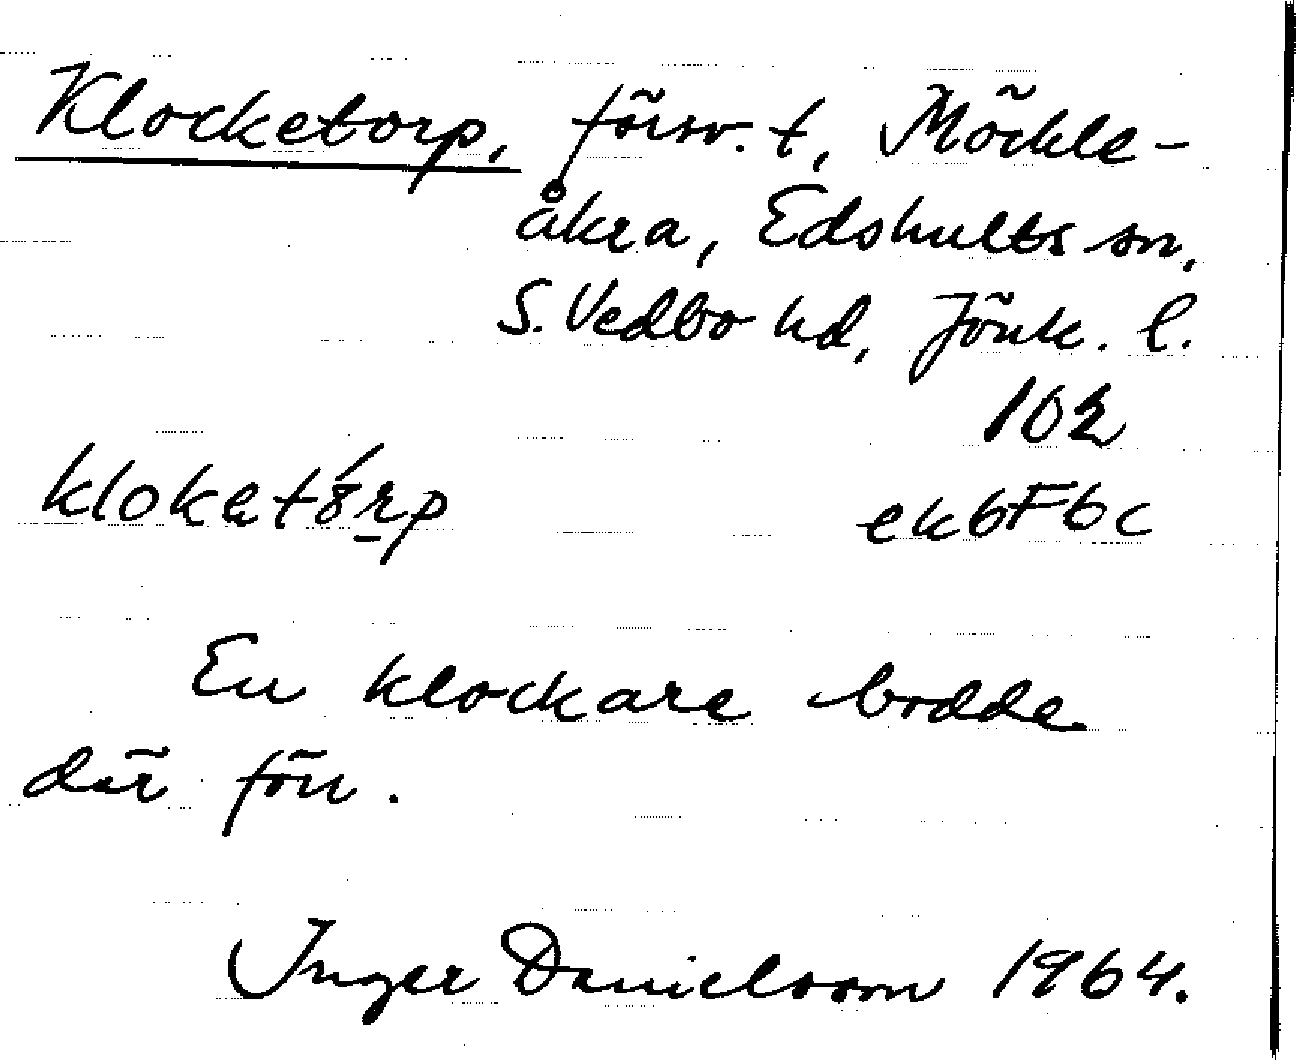 Klocketorp, försv. t, Möckle-
åkra, Edshults sn,
S. Vedbo hd, Jönk. l.
102
kloketo̍rp ek6F6c
En klockare bodde
där förr.
Inger Danielsson 1964.